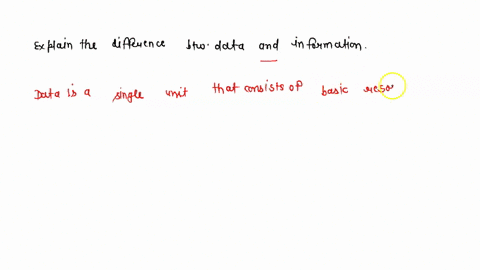 Explain the difference btw. data and information.
Data is a single unit that consists of basic reso